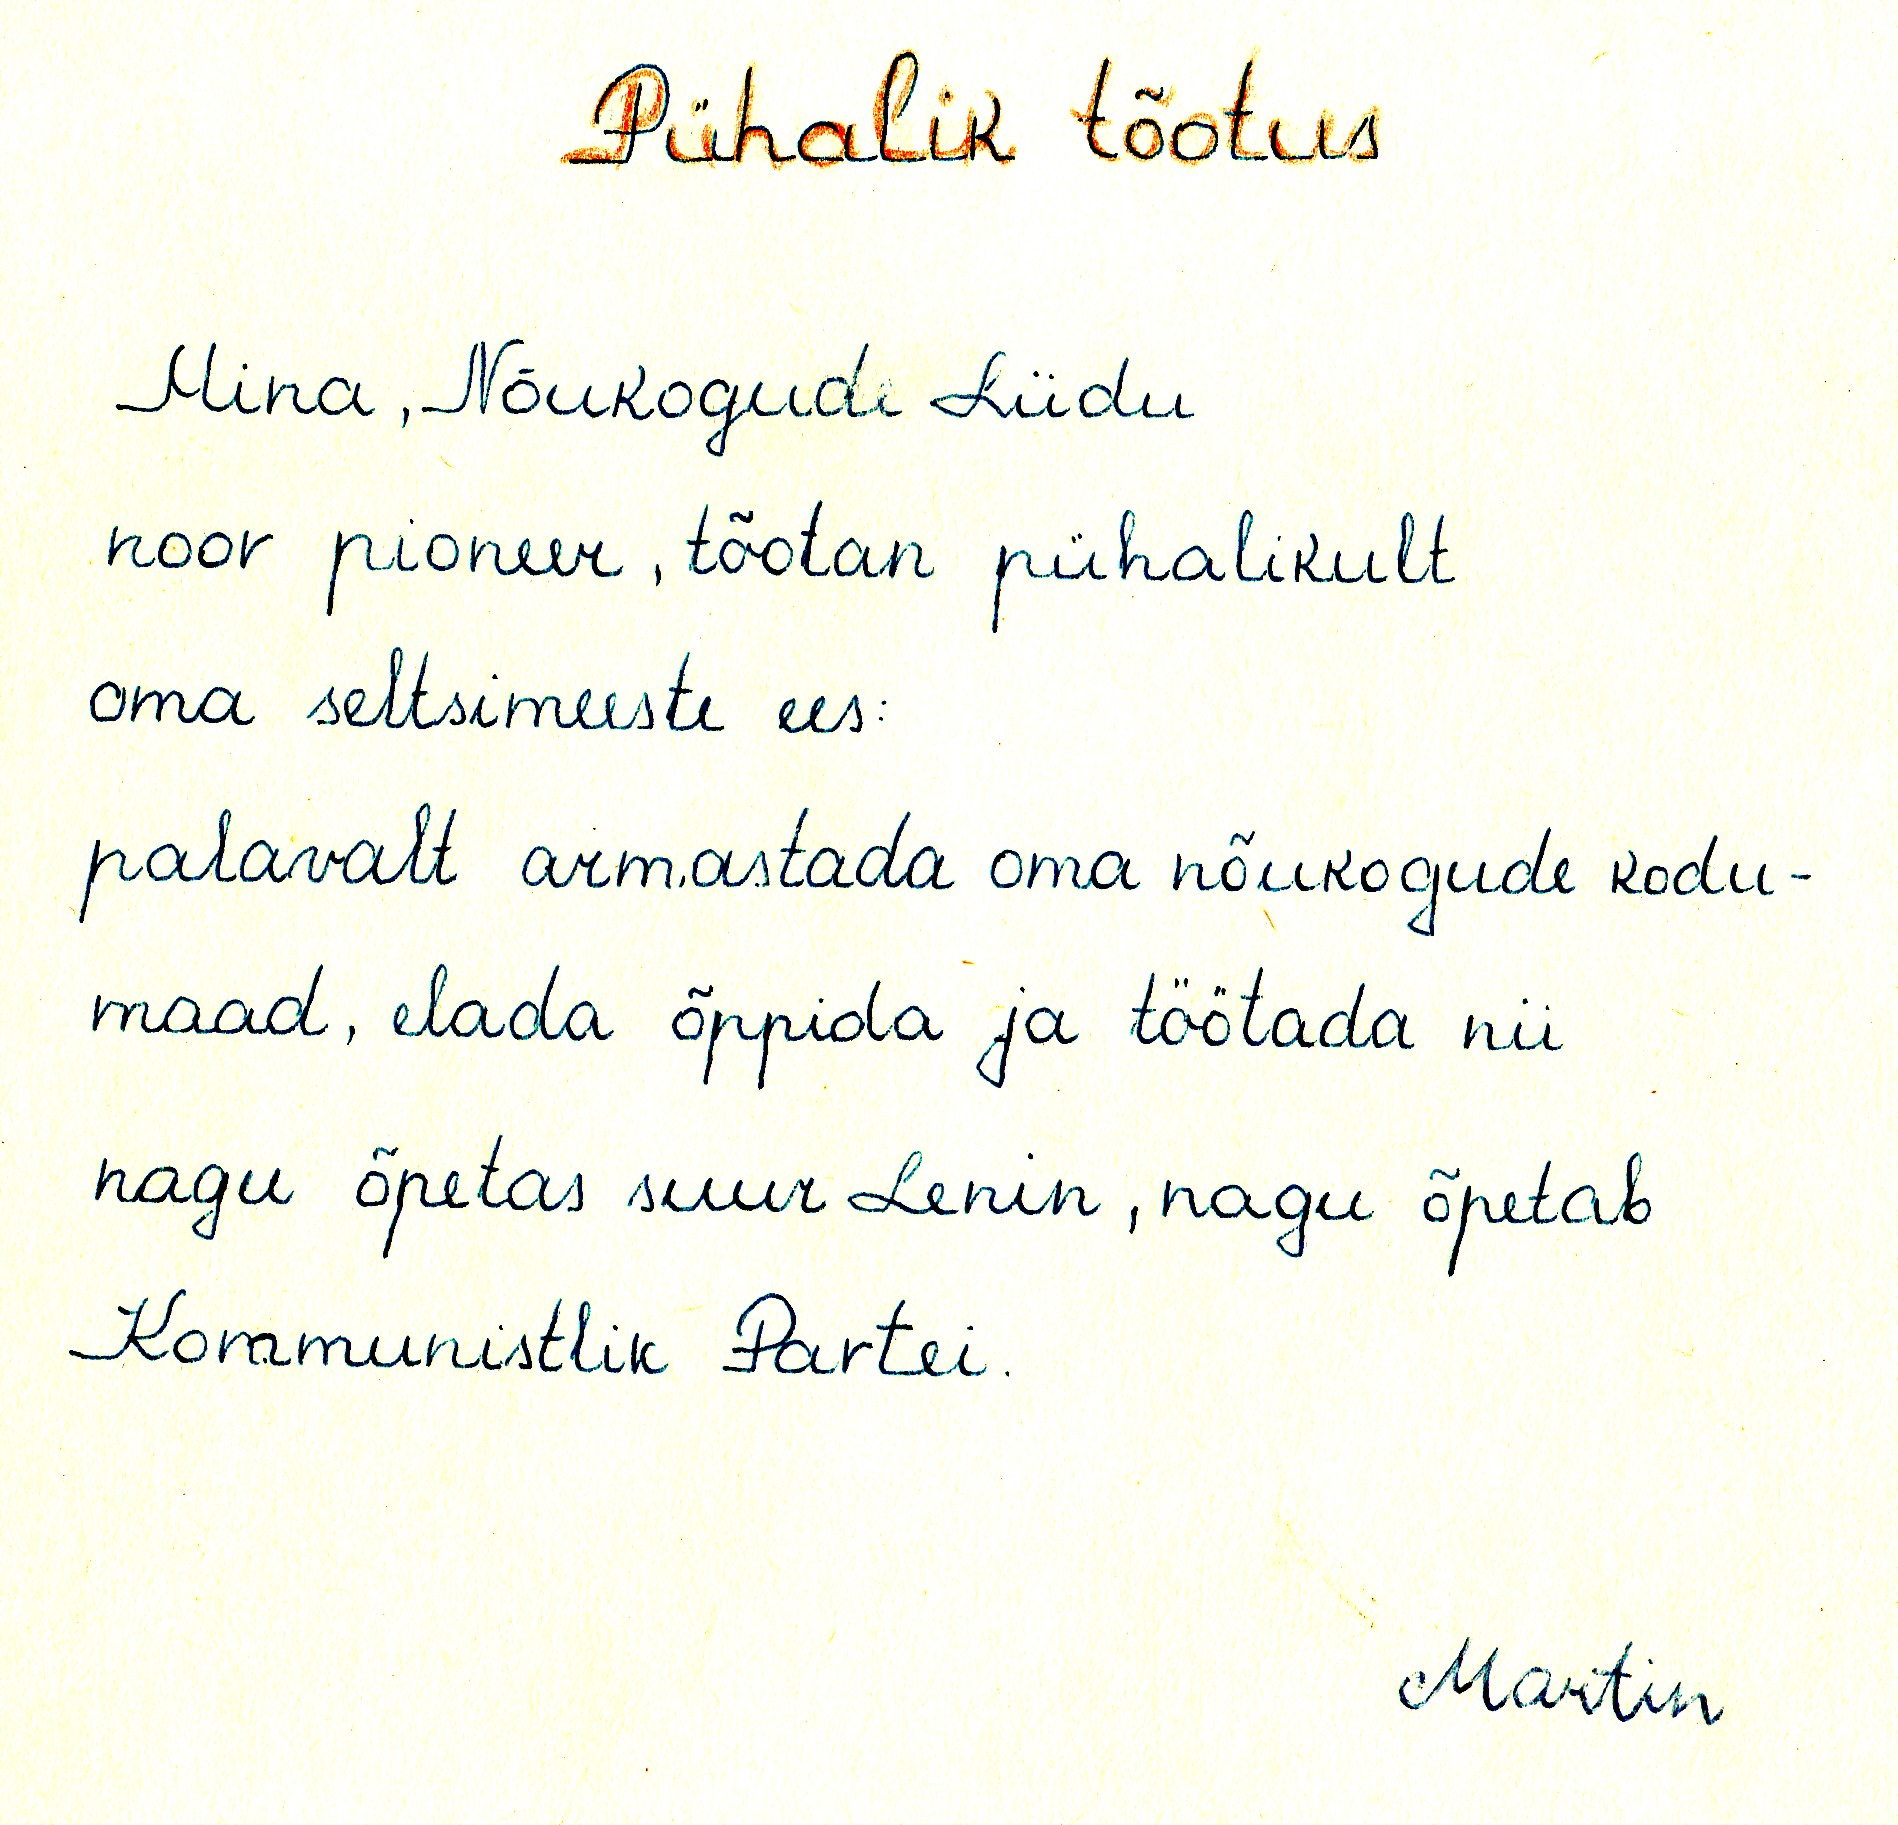 Pühalik tõotus
Mina, Nõukogude Liidu
noor pioneer, tõotan pühalikult
oma seltsimeeste ees:
palavalt armastada oma nõukogude kodu-
maad, elada õppida ja töötada nii
nagu õpetas suur Lenin, nagu õpetab
Kommunistlik Partei.
Martin